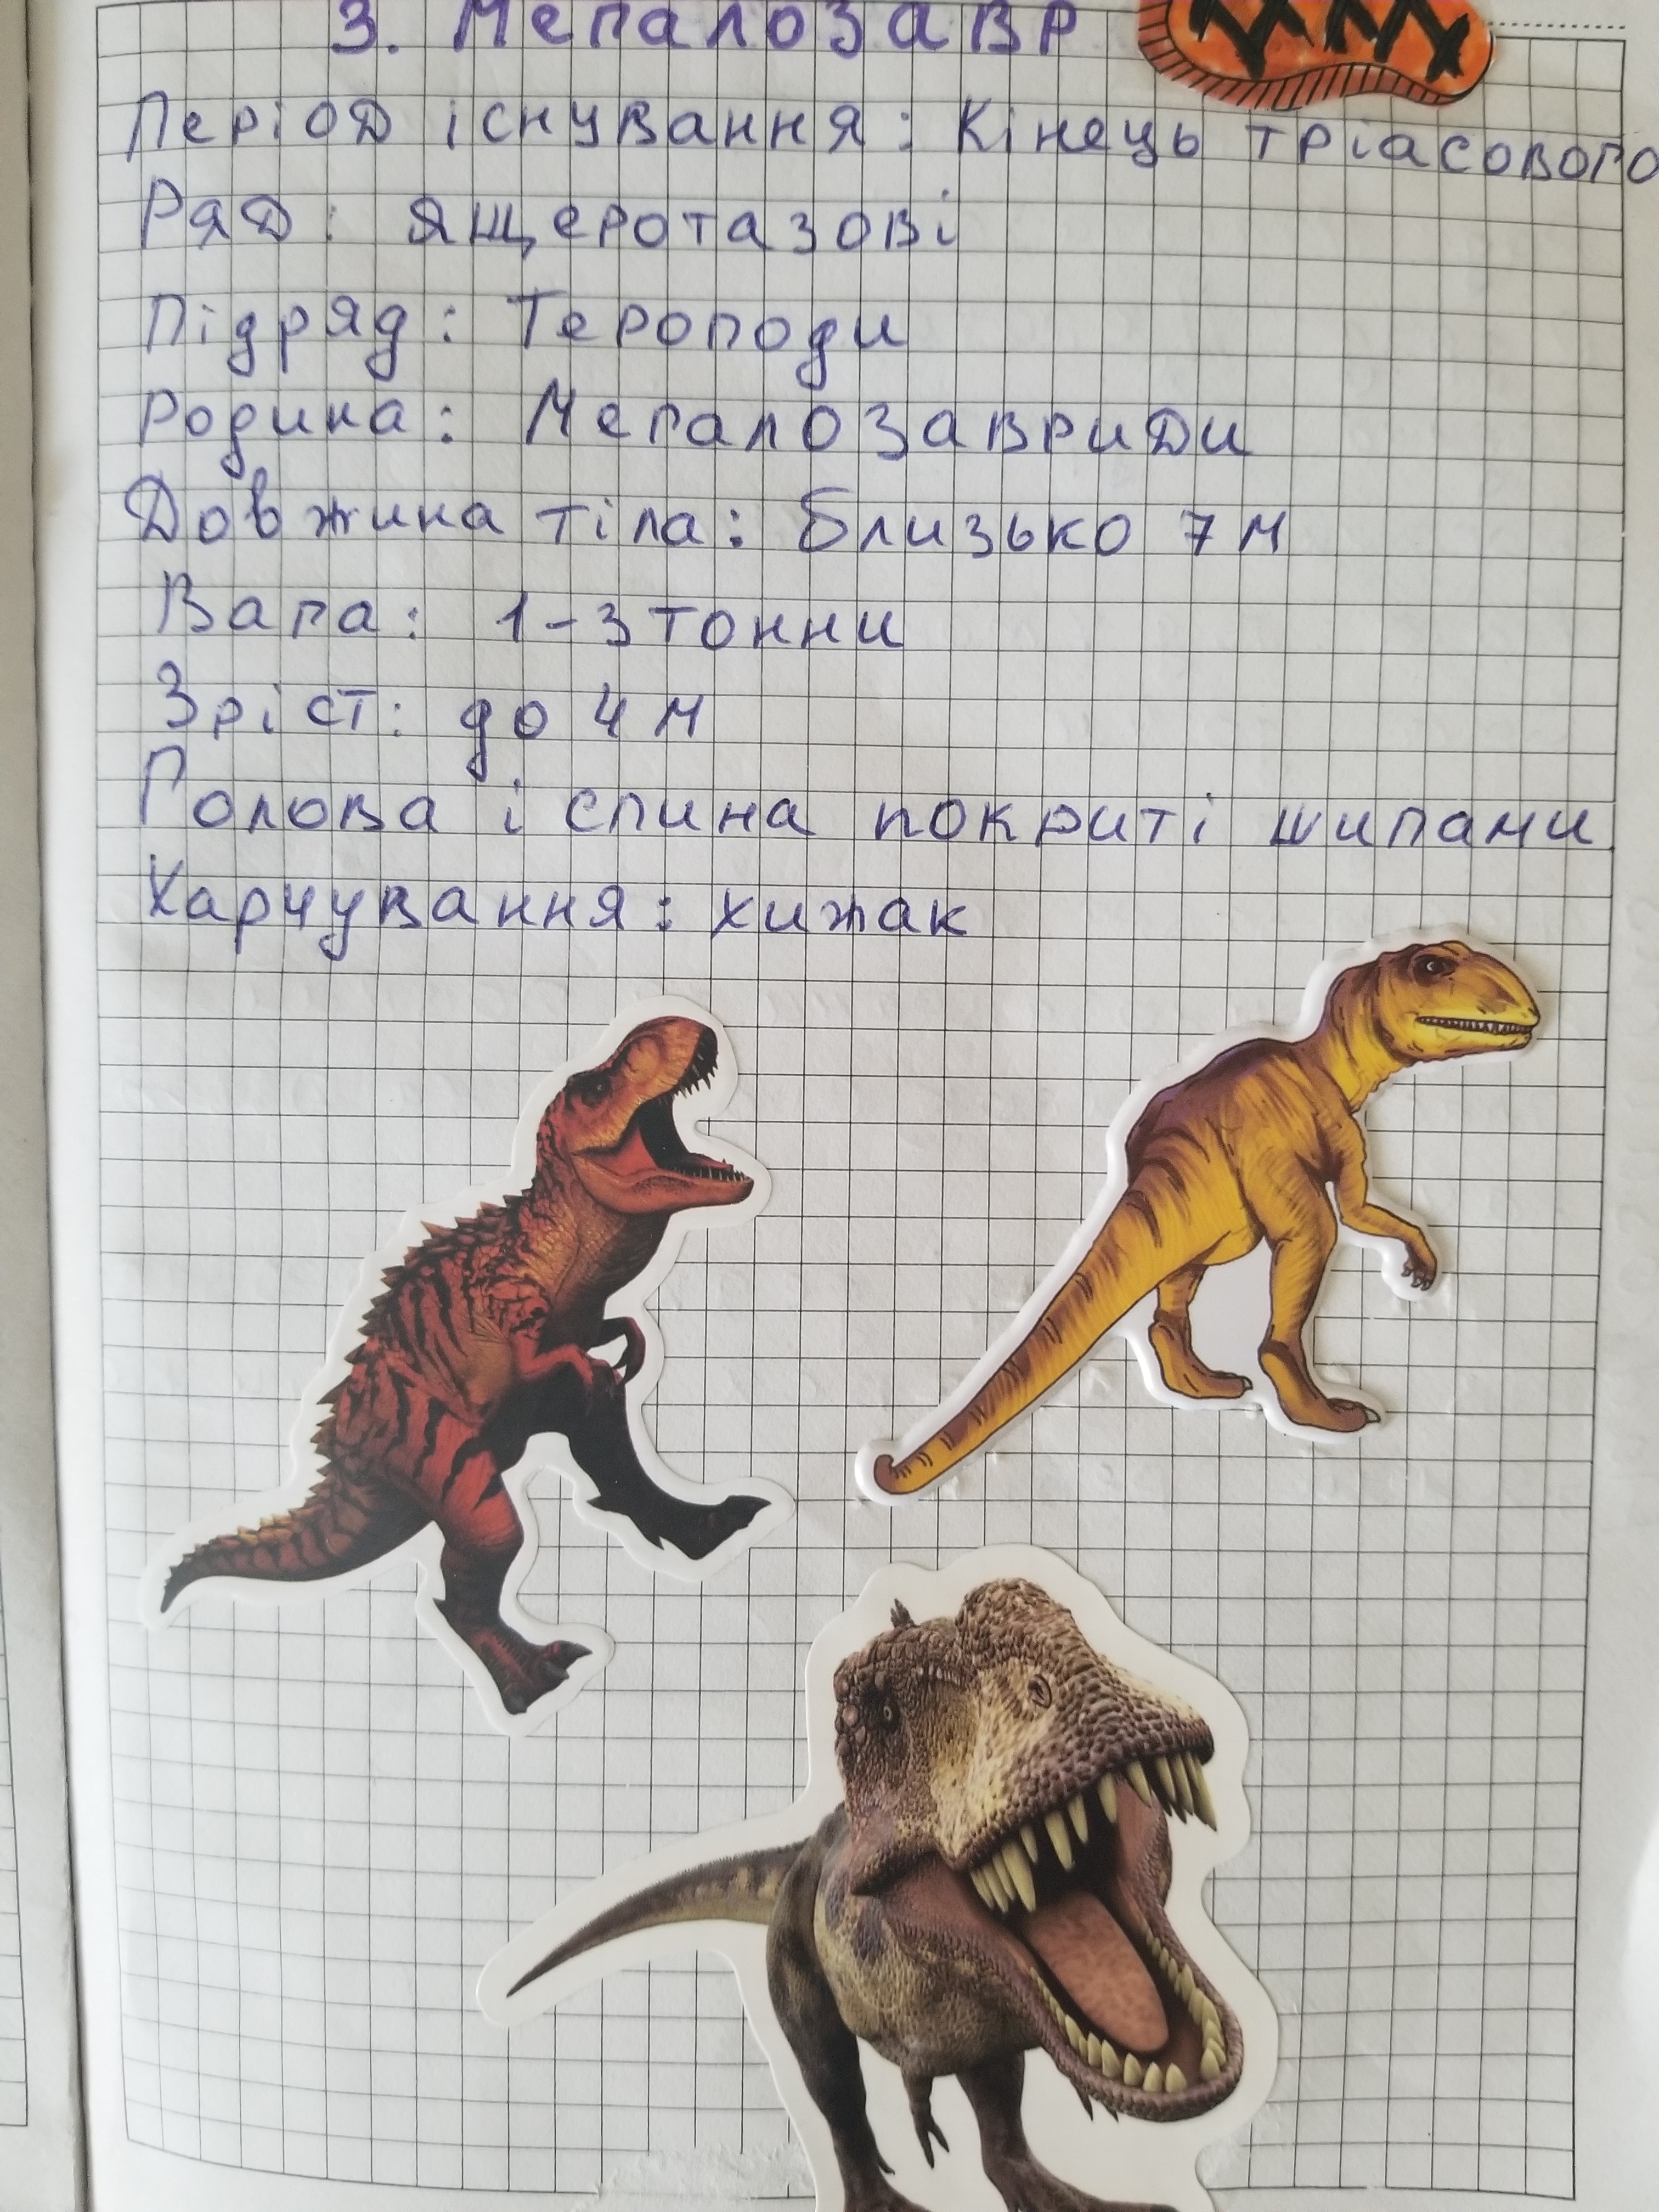 3. Мегалозавр
Період існування: Кінець тріасового
Ряд: Ящеротазові
Підряд: Тероподи
Родина: Мегалозавриди
Довжина тіла: близько 7м
Вага: 1-3 тонни
Зріст: до 4 м
Голова і спина покриті шипами.
Харчування: хижак